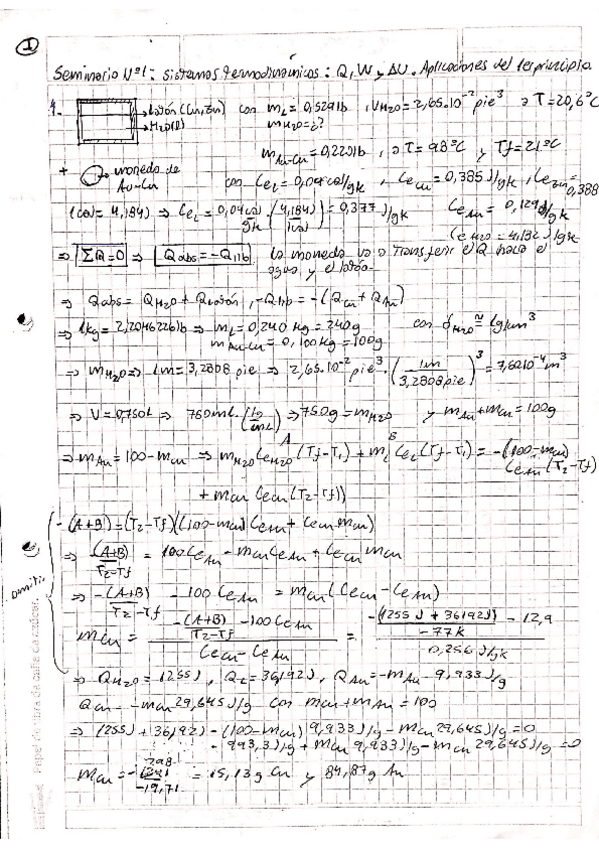 1
Seminario Nº1: sistemas termodinámicos: Q, W y ΔU. Aplicaciones del 1er principio
1.
latón (Cu, Zn) con mL = 0,529 lb , VH2O = 2,65·10⁻² pie³ a T = 20,6°C
H2O(l) mH2O = ¿?
mAu-Cu = 0,220 lb , a T = 98°C y Tf = 21°C
+ moneda de Au-Cu con CeL = 0,09 cal/gK , CeCu = 0,385 J/gK , CeZn = 0,388
1cal = 4,184J ⇒ CeL = 0,09 cal/gK · (4,184J/1cal) = 0,377 J/gK CeAu = 0,129 J/gK
CeH2O = 4,182 J/gK
⇒ ΣQ=0 ⇒ Qabs = -Qlib La moneda va a transferir el Q hacia el
agua y el latón.
⇒ Qabs = QH2O + Qlatón , -Qlib = -(QCu + QAu)
⇒ 1kg = 2,2046226 lb ⇒ mL = 0,240 Kg = 240g con dH2O ≅ 1g/cm³
mAu-Cu = 0,100Kg = 100g
⇒ mH2O ⇒ 1m = 3,2808 pie ⇒ 2,65·10⁻² pie³ · (1m/3,2808 pie)³ = 7,50·10⁻⁴ m³
⇒ V = 0,750L ⇒ 750mL (1g/1mL) ⇒ 750g = mH2O y mAu + mCu = 100g
⇒ mAu = 100 - mCu ⇒ mH2O CeH2O (Tf - T1) + mL CeL (Tf - T1) = -((100 - mCu)
A B CeAu (T2 - Tf)
+ mCu CeCu (T2 - Tf))
-(A+B) = (T2 - Tf)((100 - mCu) CeAu + CeCu mCu)
⇒ (A+B)/T2-Tf = 100 CeAu - mCu CeAu + CeCu mCu
omitir
⇒ -(A+B)/T2-Tf - 100 CeAu = mCu (CeCu - CeAu)
mCu = (-(A+B)/T2-Tf - 100 CeAu)/(CeCu - CeAu) = (-(1255J + 36,192J)/-77K - 12,9)/0,256 J/gK
⇒ QH2O = 1255J , QL = 36,192J , QAu = -mAu · 9,933 J/g
QCu = -mCu 29,645 J/g con mCu + mAu = 100
⇒ 1255J + 36,192J - (100 - mCu) 9,933 J/g - mCu 29,645 J/g = 0
- 993,3 J/g + mCu 9,933 J/g - mCu 29,645 J/g = 0
mCu = -298/-19,71 = 15,13g Cu y 84,87g Au